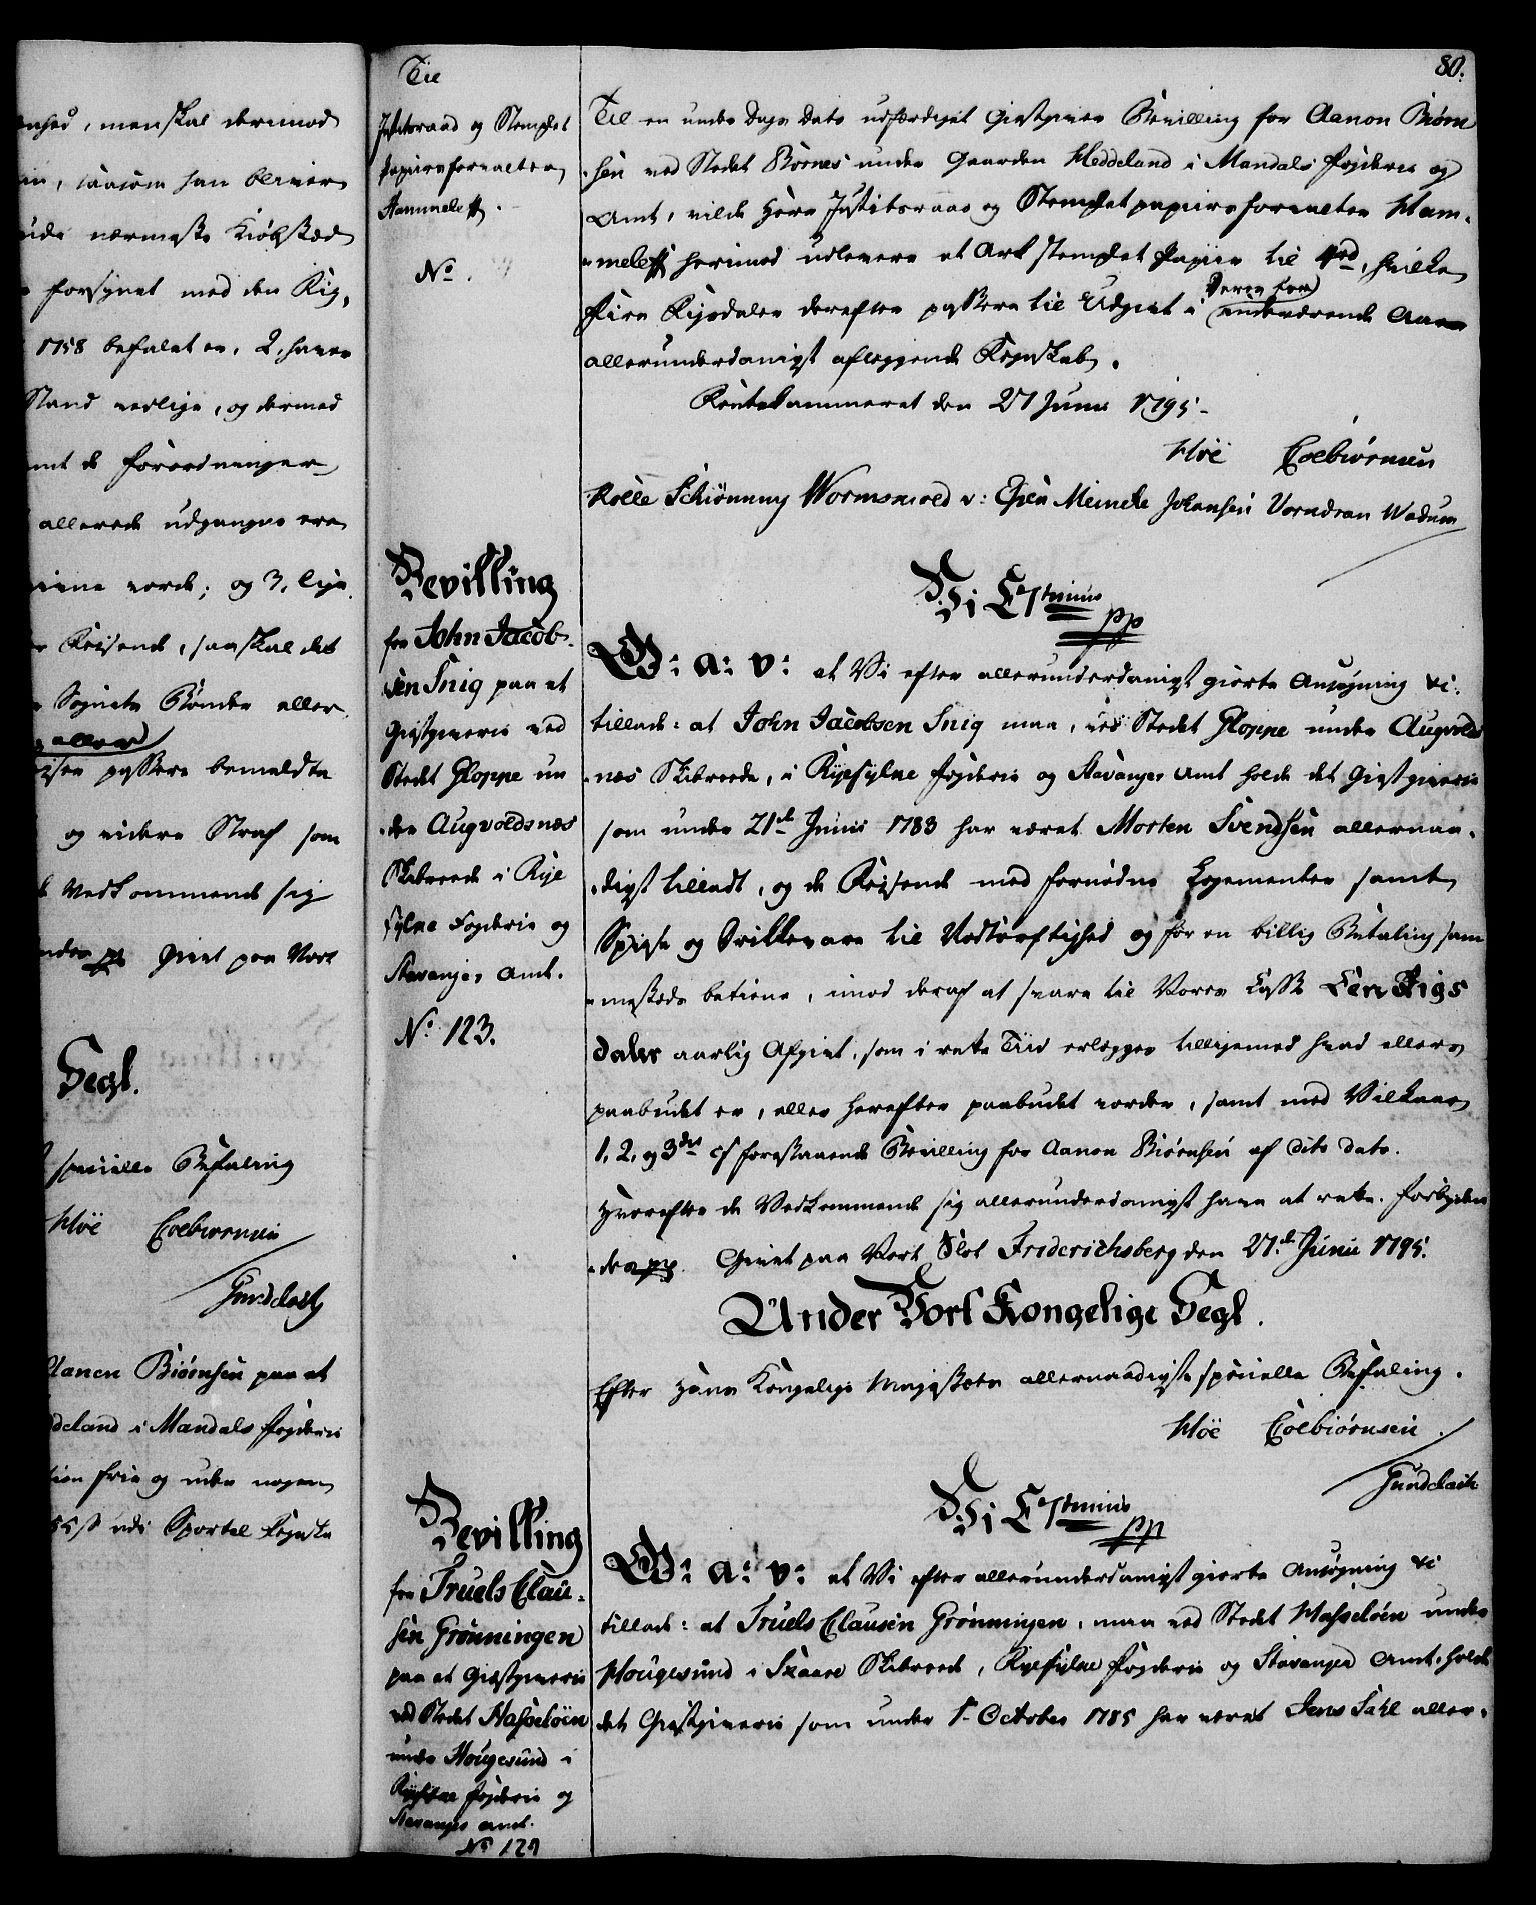 enhed, men skal derimod
, saasom han bliver
nærmeste Kiøbstæd
forsynet med den Rig,
1758 befalet er, 2, have
Stand vedlige, og dermed
samt de Forordninger
allerede udgangne ere
vorde; og 3, lige
Reisende, saa skal det
Sognets Bønder eller
eller
passere bemeldte
og videre Straf som
Vedkommende sig
pp Givet paa Vort
Segl.
specielle Befaling
Høe Colbiørnsen
Gundelach
Aanon Biørnsen paa at
deland i Mandals Fogderie
frie og uden nogen
udi Sportel Regnska
80.
Til
Justitsraad og Stemplet
Papiirsforvalter
Hammeleff.
No.
Til en under Dags Dato udfærdiget Giestgiver Bevilling for Aanon Biørn
sen ved Stedet Birnes under Gaarden Heddeland i Mandals Fogderie og
Amt, vilde Herr Justitsraad og Stemplet papiirsforvalter Ham-
meleff herimod udlevere et Ark stemplet Papiir til 4rd, hvilke
Fire Rigsdaler derefter passere til Udgivt i Deres for
inderværende Aar
allerunderdanigst aflæggende Regnskab.
Rentekammeret den 27 Junii 1795.
Høe Colbiørnsen
Rolle Schiønning Wormskiold v: Essen Meincke Johansen Vorndran Wadum
Bevilling
for John Jacob-
sen Snig paa at
Giestgiverie ved
Stedet Gloppe un
der Augvoldsnæs
Skibreede i Rye
fylke Fogderie og
Stavanger Amt.
No. 123.
Vi C 7tmus
pp
G: A: V: at Vi efter allerunderdanigst giorte Ansøgning &c:
tillade: at John Jacobsen Snig maa, ved Stedet Gloppe under Augvolds
næs Skibreede, i Ryefylke Fogderie og Stavanger Amt holde det Giestgiverie
som under 21de Junii 1783 har været Morten Svendsen allernaa-
digst tilladt, og de Reisende med fornødne Logementer samt
Spiise og Drikkevare til Nødtørftighed og for en billig Betaling sam
mesteds betiene, imod deraf at svare til Vores Casse Een Rigs
daler aarlig Afgivt, som i rette Tiid erlægges tilligemed hvad ellers
paabudet er, eller herefter paabudet vorder, samt med Vilkaar
1, 2, og 3die af forestaaende Bevilling for Aanon Biørnsen af dito dato.
Hvorefter de Vedkommende sig allerunderdanigst have at rette. Forbyden
de pp. Givet paa Vort Slot Friderichsberg den 27de Junii 1795.
Under Vort Kongelige Segl.
Efter Hans Kongelige Majestets allernaadigste specielle Befaling.
Høe Colbiørnsen.
Gundelach
Bevilling
for Truels Clau-
sen Grønningen
paa at Giestgiverie
ved Stedet Hasseløen
under Hougesund i
Ryefylke Fogderie og
Stavanger Amt.
No 124
Vi C 7tmus
pp
G: A: V: at Vi efter allerunderdanigst giorte Ansøgning &c
tillade: at Truels Clausen Grønningen, maa ved Stedet Hasseløen under
Hougesund i Skaare Skibreede, Ryefylke Fogderie og Stavanger Amt, holde
det Giestgiverie som under 1te October 1785 har været Jens Sahl aller-